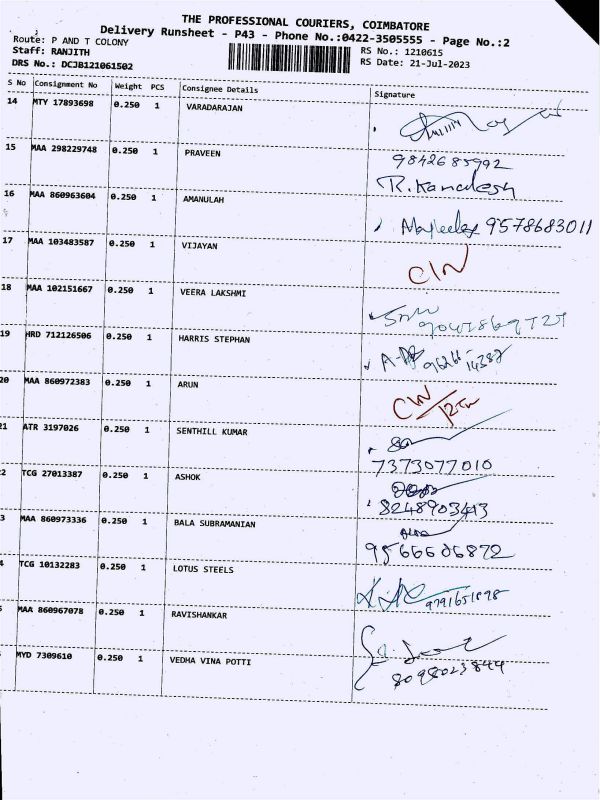 THE PROFESSIONAL COURIERS, COIMBATORE
Delivery Runsheet - P43 - Phone No.:0422-3505555 - Page No.:2
Route: P AND T COLONY
Staff: RANJITH
DRS No.: DCJB121061502
RS No.: 1210615
RS Date: 21-Jul-2023
S No Consignment No Weight PCS Consignee Details Signature
14 MTY 17893698 0.250 1 VARADARAJAN
15 MAA 298229748 0.250 1 PRAVEEN 9842685992
R.Kamalesh
16 MAA 860963604 0.250 1 AMANULAH 9578683011
17 MAA 103483587 0.250 1 VIJAYAN CIN
18 MAA 102151667 0.250 1 VEERA LAKSHMI
19 HRD 712126506 0.250 1 HARRIS STEPHAN
20 MAA 860972383 0.250 1 ARUN
21 ATR 3197026 0.250 1 SENTHILL KUMAR
7373077010
2 TCG 27013387 0.250 1 ASHOK
8248903413
3 MAA 860973336 0.250 1 BALA SUBRAMANIAN
9566606872
4 TCG 10132283 0.250 1 LOTUS STEELS
9791651898
MAA 860967078 0.250 1 RAVISHANKAR
MYD 7309610 0.250 1 VEDHA VINA POTTI
8098023844